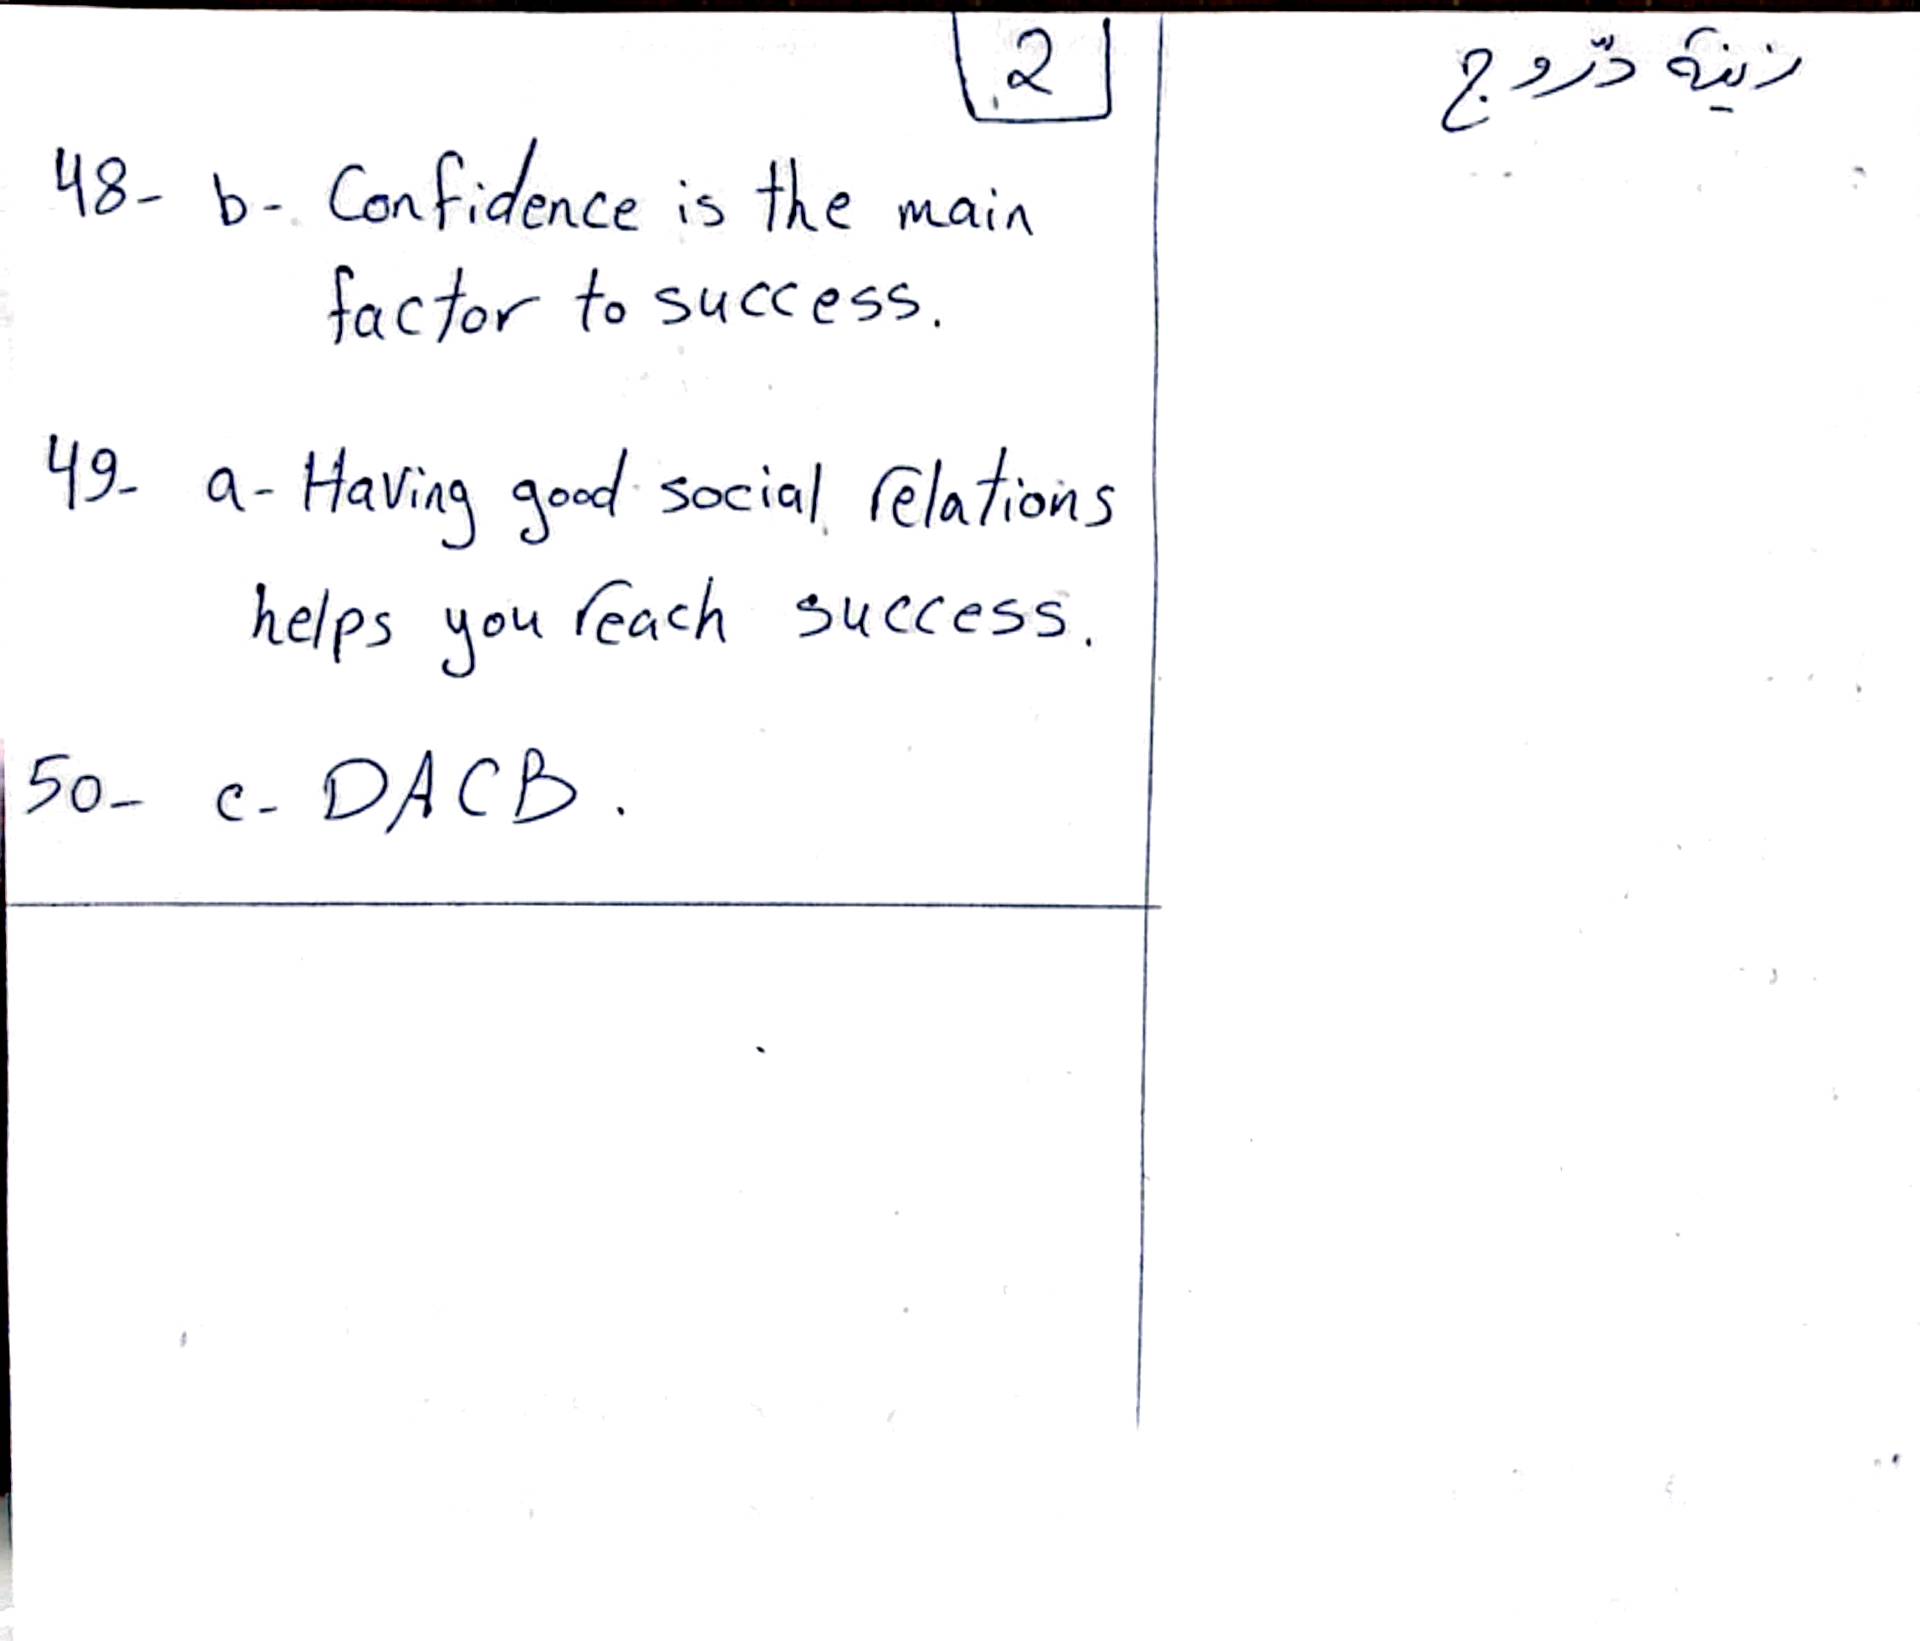 2
زينة درّوج
48- b- Confidence is the main
factor to success.
49- a- Having good social relations
helps you reach success.
50- c- DACB.